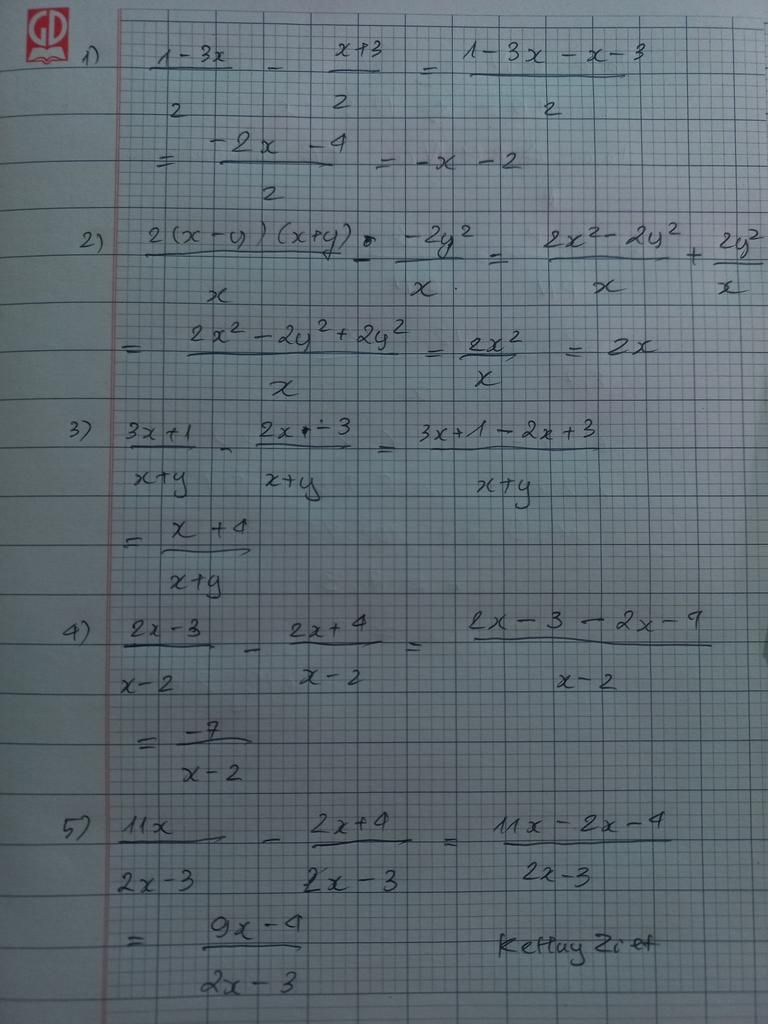 GD
1) \frac{1-3x}{2} - \frac{x+3}{2} = \frac{1-3x-x-3}{2}
= \frac{-2x-4}{2} = -x-2
2) \frac{2(x-y)(x+y)}{x} - \frac{-2y^2}{x} = \frac{2x^2-2y^2}{x} + \frac{2y^2}{x}
= \frac{2x^2-2y^2+2y^2}{x} = \frac{2x^2}{x} = 2x
3) \frac{3x+1}{x+y} - \frac{2x-3}{x+y} = \frac{3x+1-2x+3}{x+y}
= \frac{x+4}{x+y}
4) \frac{2x-3}{x-2} - \frac{2x+4}{x-2} = \frac{2x-3-2x-4}{x-2}
= \frac{-7}{x-2}
5) \frac{11x}{2x-3} - \frac{2x+4}{2x-3} = \frac{11x-2x-4}{2x-3}
= \frac{9x-4}{2x-3}